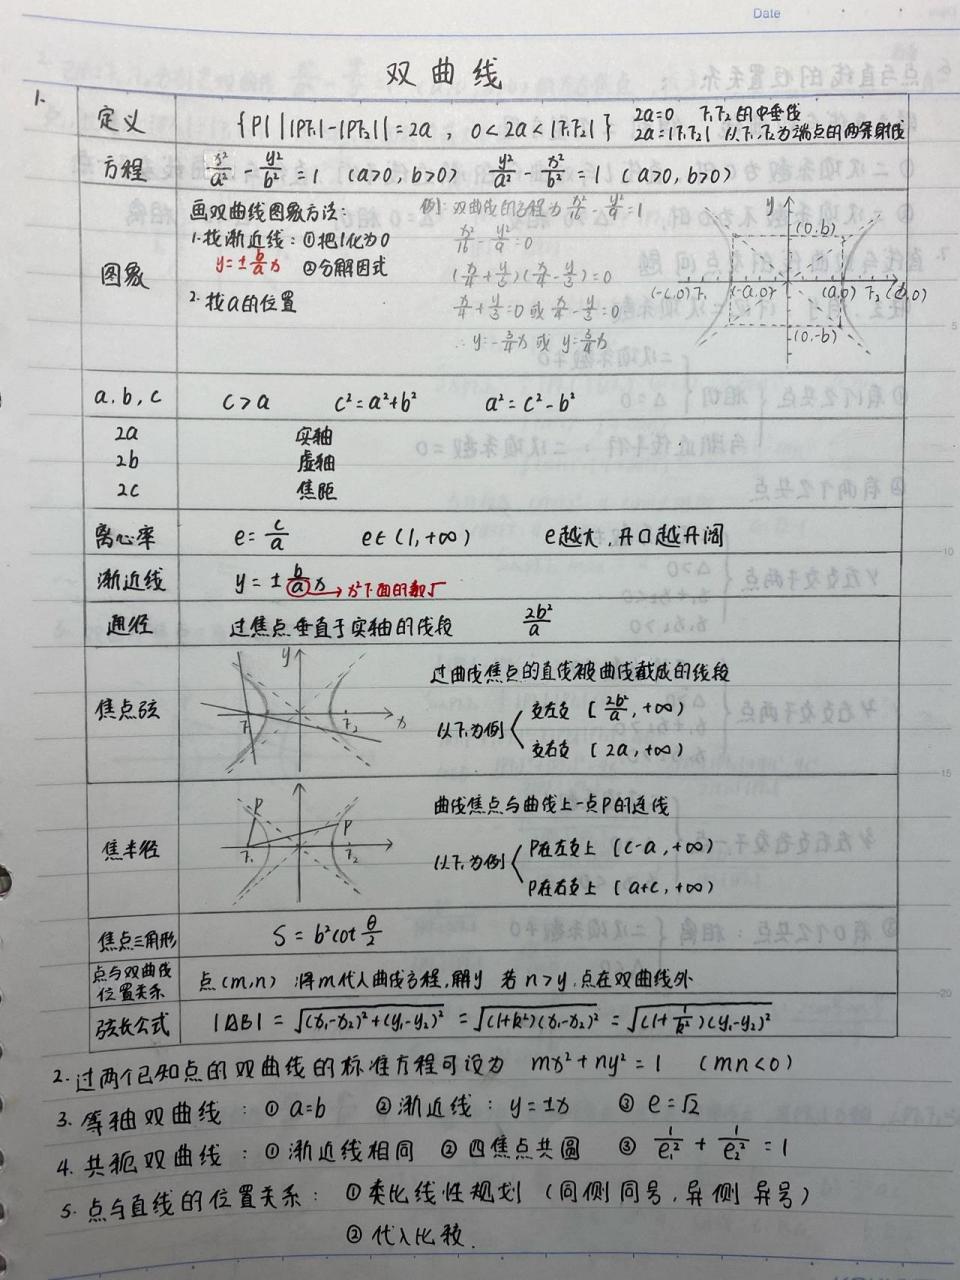 Date
双曲线
1.
定义 {P| ||PF₁|-|PF₂||=2a , 0<2a<|F₁F₂|} 2a=0 F₁F₂的中垂线
2a=|F₁F₂| 以F₁,F₂为端点的两条射线
方程 x²/a² - y²/b² = 1 (a>0, b>0) y²/a² - x²/b² = 1 (a>0, b>0)
图象
画双曲线图象方法:
1.找渐近线: ①把1化为0
y=±b/a x ②分解因式
2.找a的位置
例:双曲线的方程为x²/16 - y²/9 = 1
x²/16 - y²/9 = 0
(x/4 + y/3)(x/4 - y/3) = 0
x/4 + y/3 = 0 或 x/4 - y/3 = 0
∴ y=-3/4x 或 y=3/4x
y
(0,b)
(-c,0) F₁ (-a,0) (a,0) F₂ (c,0)
(0,-b)
a, b, c c>a c²=a²+b² a²=c²-b²
2a 实轴
2b 虚轴
2c 焦距
离心率 e=c/a e∈(1,+∞) e越大,开口越开阔
渐近线 y=±b/a x → x²下面的数√
通径 过焦点垂直于实轴的线段 2b²/a
焦点弦
y
F₁ F₂ x
过曲线焦点的直线被曲线截成的线段
以F₁为例
交左支 [2b²/a, +∞)
交右支 [2a, +∞)
焦半径
P P
F₁ F₂
曲线焦点与曲线上一点P的连线
以F₁为例
P在左支上 (c-a, +∞)
P在右支上 (a+c, +∞)
焦点三角形 S=b²cot θ/2
点与双曲线
位置关系 点(m,n) 将m代入曲线方程,解y 若n>y,点在双曲线外
弦长公式 |AB| = √(x₁-x₂)²+(y₁-y₂)² = √(1+k²)(x₁-x₂)² = √(1+1/k²)(y₁-y₂)²
2.过两个已知点的双曲线的标准方程可设为 mx²+ny²=1 (mn<0)
3.等轴双曲线: ①a=b ②渐近线: y=±x ③e=√2
4.共轭双曲线: ①渐近线相同 ②四焦点共圆 ③1/e₁² + 1/e₂² = 1
5.点与直线的位置关系: ①类比线性规划 (同侧同号,异侧异号)
②代入比较.